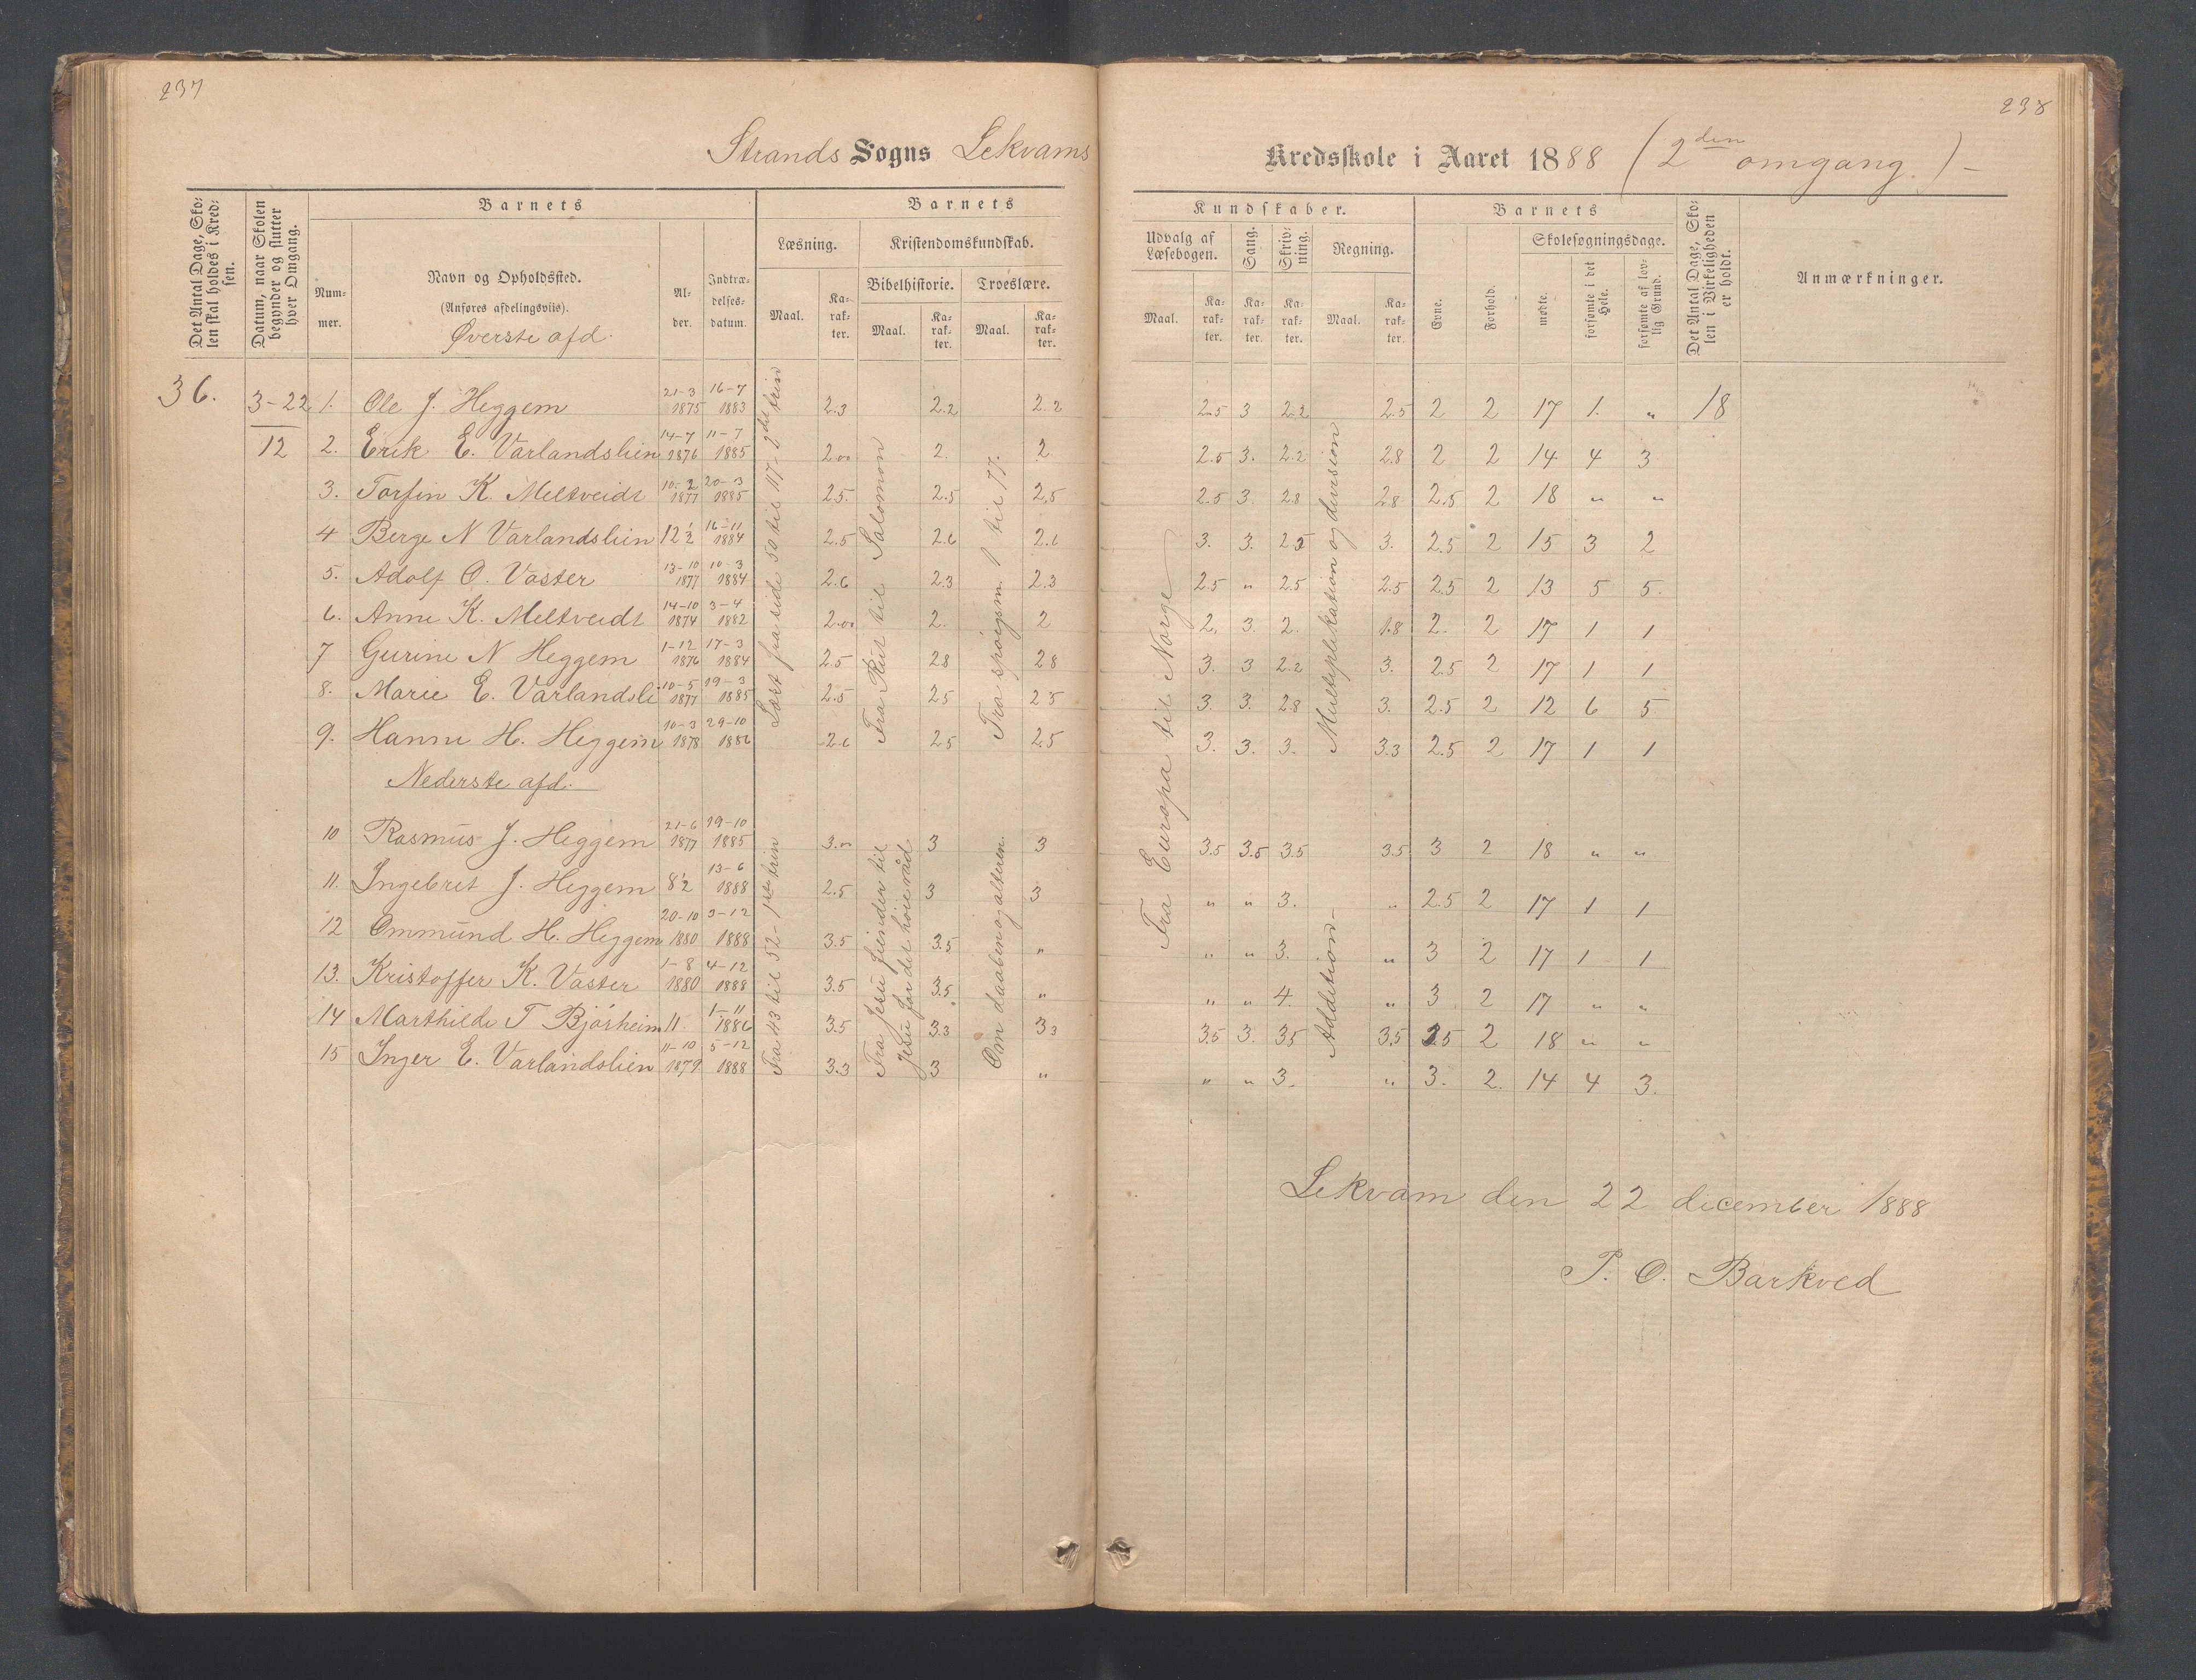 237
238
Strands Sogns Lekvams Kredsskole i Aaret 1888 (2den omgang.) -
Det Antal Dage, Skolen skal holdes i Kredsen.
Datum, naar Skolen begynder og slutter hver Omgang.
Barnets
Nummer.
Navn og Opholdssted.
(Anføres afdelingsviis).
Øverste afd.
Alder.
Indtrædelsesdatum.
Barnets Kundskaber.
Læsning.
Maal. Karakter.
Kristendomskundskab.
Bibelhistorie. Troeslære.
Maal. Karakter. Maal. Karakter.
Udvalg af Læsebogen.
Maal. Karakter.
Sang. Karakter.
Skrivning. Karakter.
Regning.
Maal. Karakter.
Barnets
Evne. Forhold.
Skolesøgningsdage.
mødte. forsømte i det Hele. forsømte af lovlig Grund.
Det Antal Dage, Skolen i Virkeligheden er holdt.
Anmærkninger.
36. 3-22/12 1. Ole J. Heggem 21-3 1875 16-7 1883 2.3 2.2 2.2 2.5 3 2.2 2.5 2 2 17 1. " 18
2. Erik E. Varlandslien 14-7 1876 11-7 1885 2.00 2. 2 2.5 3. 2.2 2.8 2 2 14 4 3
3. Torfin K. Meltveidt 10-2 1877 20-3 1885 2.5 2.5 2,5 2.5 3. 2.8 2.8 2.5 2 18 " "
4 Berge N Varlandslien 12 1/2 16-11 1884 2.5 2.6 2.6 3. 3. 2.5 3. 2.5 2 15 3 2
5. Adolf O. Vaster 13-10 1877 10-3 1884 2.6 2.3 2.3 2.5 " 2.5 2.5 2.5 2 13 5 5.
6. Anne K. Meltveidt 14-10 1874 3-4 1882 2.00 2. 2 2. 3. 2. 1.8 2. 2 17 1 1
7 Gurine N Heggem 1-12 1876 17-3 1884 2.5 2.8 2.8 3. 3 2.2 3. 2.5 2 17 1 1
8. Marie E. Varlandsli 10-5 1877 19-3 1885 2.5 2.5 2.5 3. 3. 2.8 3. 2.5 2 12 6 5
9. Hanne H. Heggem 10-3 1878 29-10 1886 2.6 2.5 2.5 3. 3. 3. 3.3 2.5 2 17 1 1
Læst fra side 50 til 117 - 2det trin
Fra Rut til Salomon
Fra spörgsm. 1 til 77.
Fra Europa til Norge
Multiplikation og division
Nederste afd.
10 Rasmus J. Heggem 21-6 1877 19-10 1885 3.00 3 3 3.5 3.5 3.5 3.5 3 2 18 " "
11. Ingebret J. Heggem 8 1/2 13-6 1888 2.5 3 3 " " 3. " 2.5 2 17 1 1
12 Ommund H. Heggem 20-10 1880 3-12 1888 3.5 3.5 " " " 3. " 3 2 17 1 1
13. Kristoffer K. Vaster 1-8 1880 4-12 1888 3.5 3.5 " " " 4. " 3 2 17 " "
14 Marthilde T Bjórheim 11 1-11 1886 3.5 3.3 3.3 3.5 3. 3.5 3.5 3.5 2 18 " "
15 Inger E. Varlandslien 11-10 1879 5-12 1888 3.3 3 " " " 3. " 3. 2. 14 4 3.
Fra 43 til 52 - 1ste trin
Fra Jesu fiender til
Jesu for det høie råd
Om daaben og alteren.
Addition -
Lekvam den 22 december 1888
P. O. Barkved